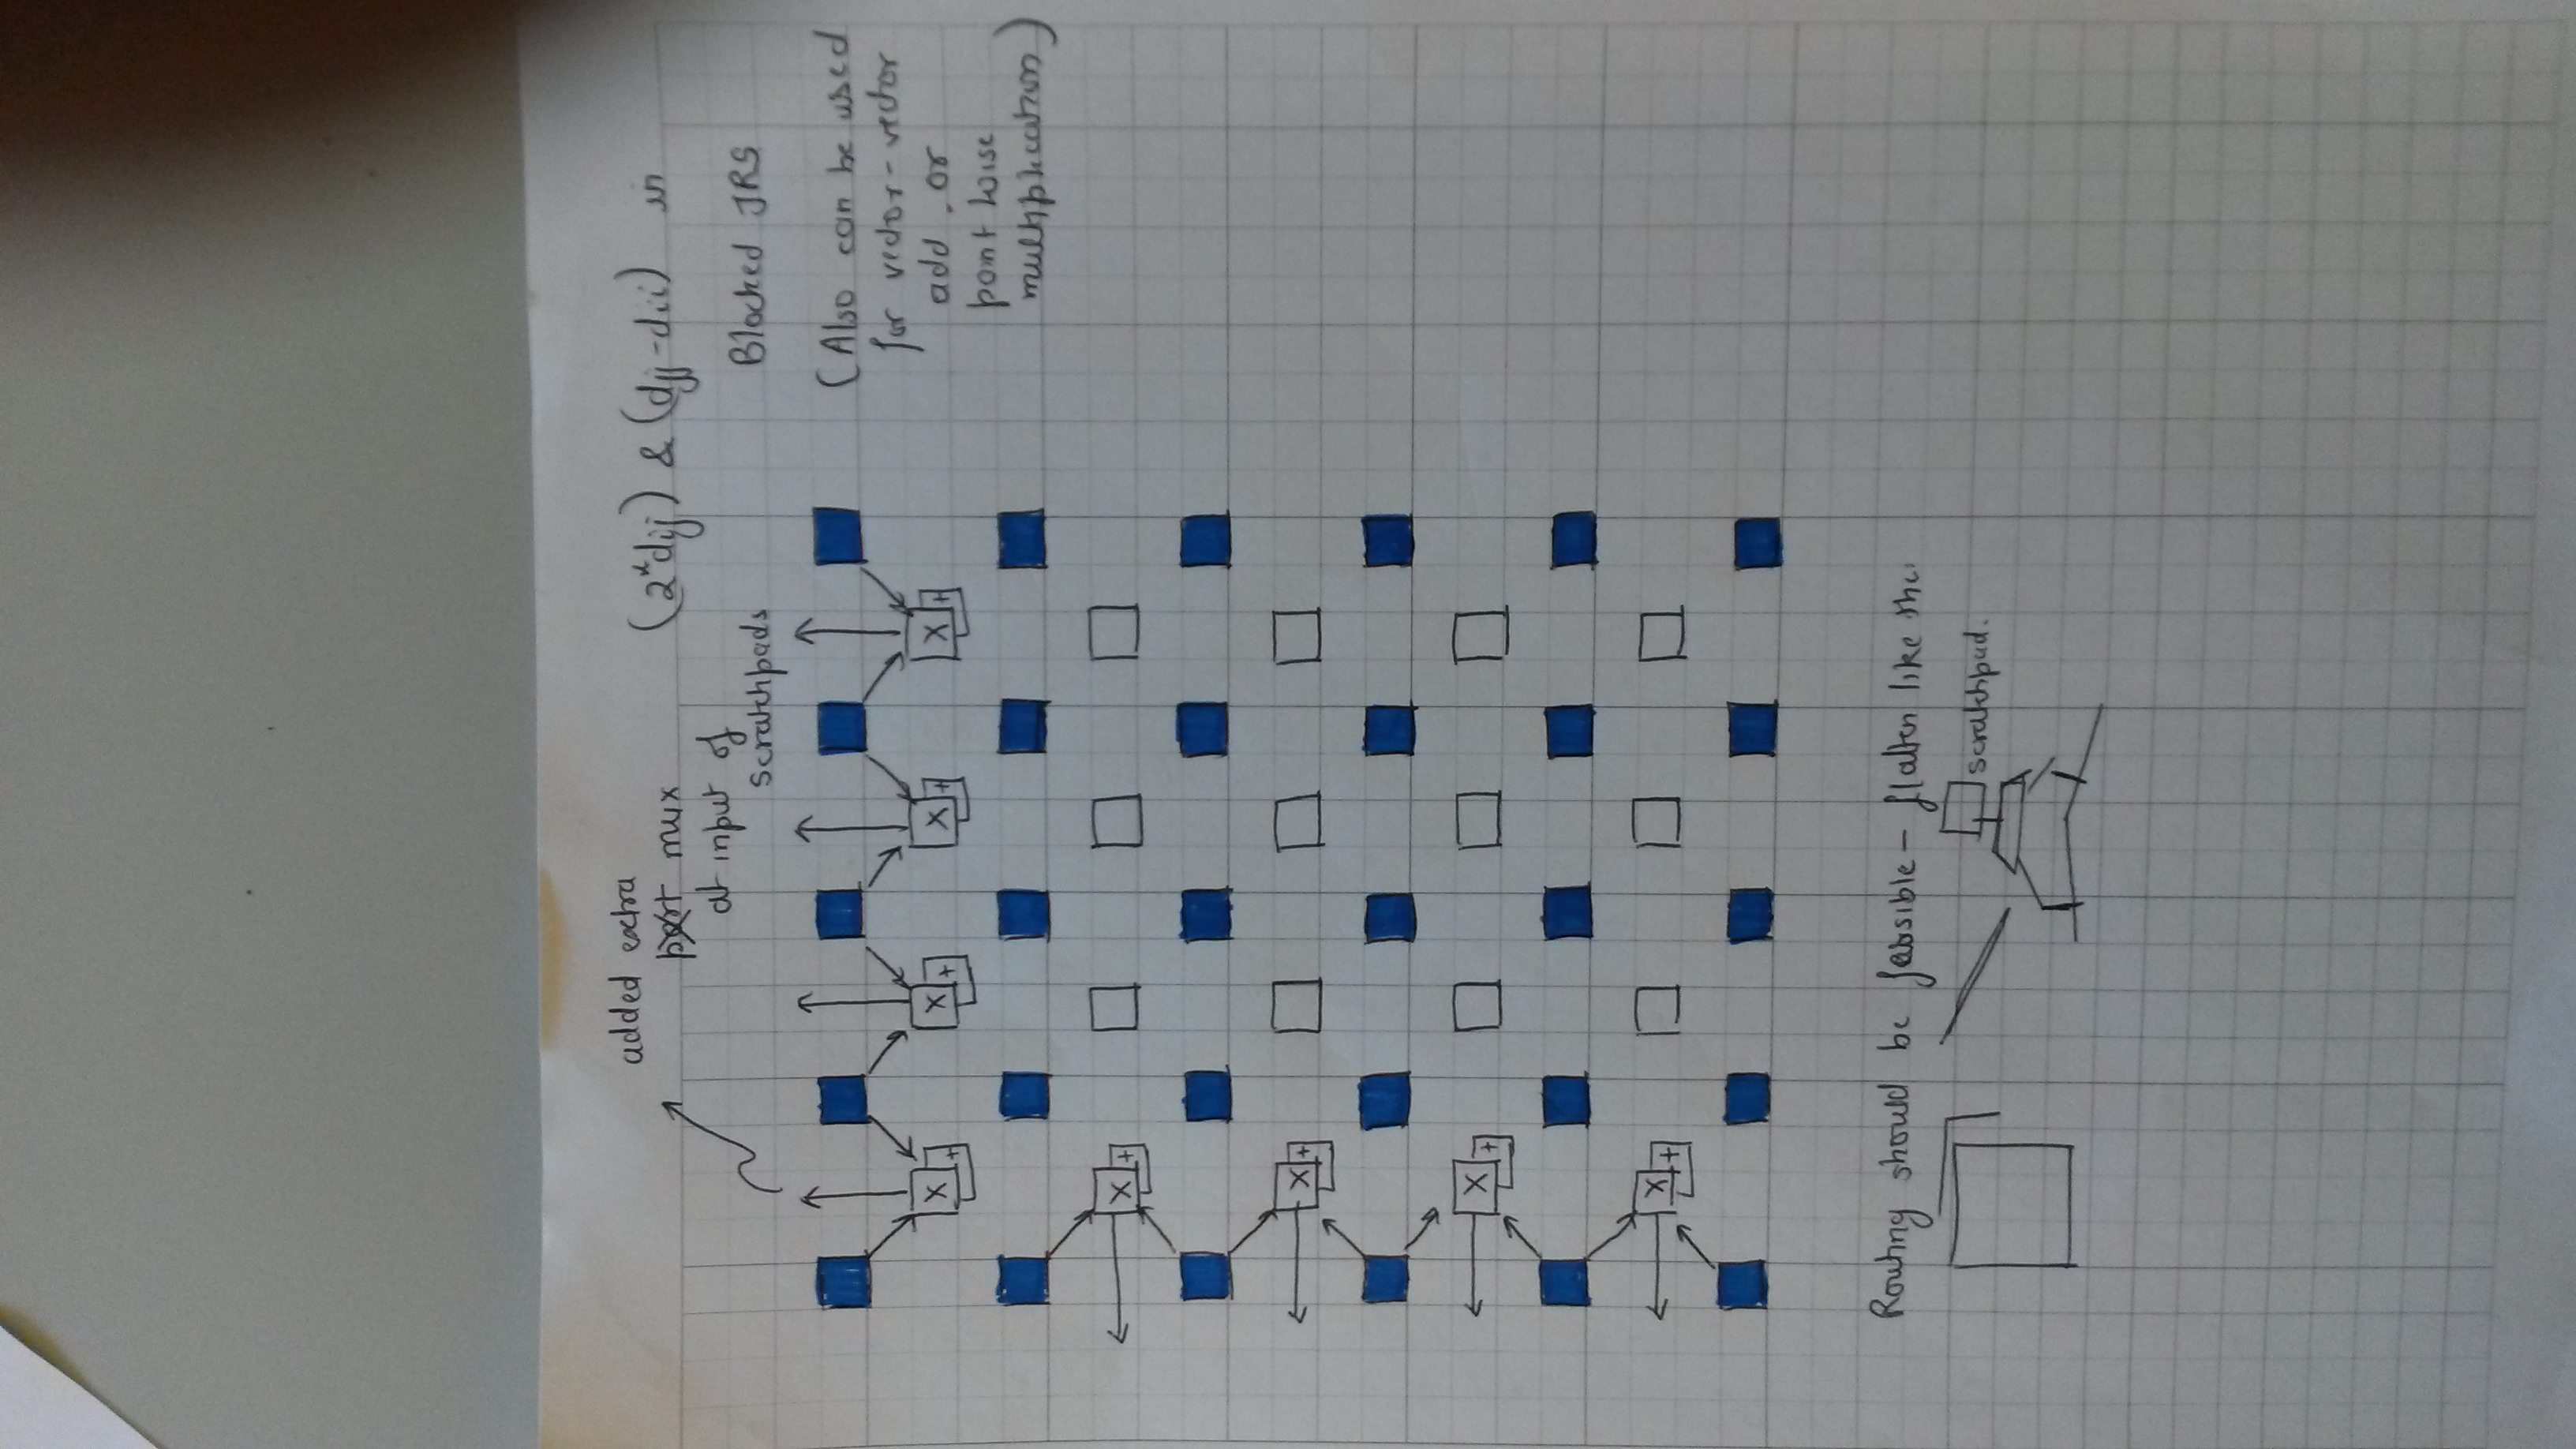 added extra
port mux
at input of
scratchpads
(2*dij) & (djj-dii) in
Blocked JRS
(Also can be used
for vector-vector
add, or
point wise
multiplication)
X + X + X + X +
X +
X +
X +
X +
Routing should be feasible - flatten like the
scratchpad.